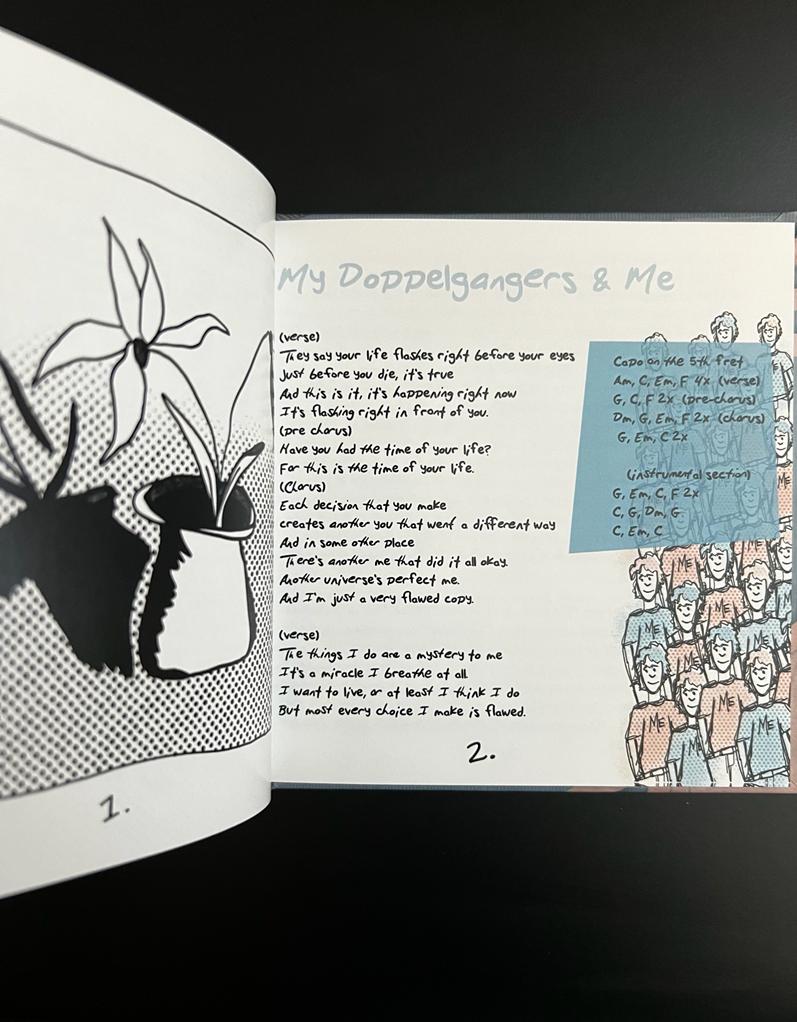 1.
My Doppelgangers & Me
(verse)
They say your life flashes right before your eyes
Just before you die, it's true
And this is it, it's happening right now
It's flashing right in front of you.
(pre chorus)
Have you had the time of your life?
For this is the time of your life.
(Chorus)
Each decision that you make
creates another you that went a different way
And in some other place
There's another me that did it all okay.
Another universe's perfect me.
And I'm just a very flawed copy.
(verse)
The things I do are a mystery to me
It's a miracle I breathe at all
I want to live, or at least I think I do
But most every choice I make is flawed.
2.
Capo on the 5th fret
Am, C, Em, F 4x (verse)
G, C, F 2x (pre-chorus)
Dm, G, Em, F 2x (chorus)
G, Em, C 2x
(instrumental section)
G, Em, C, F 2x
C, G, Dm, G
C, Em, C
ME
ME
ME
ME
ME
ME
ME
ME
ME
ME